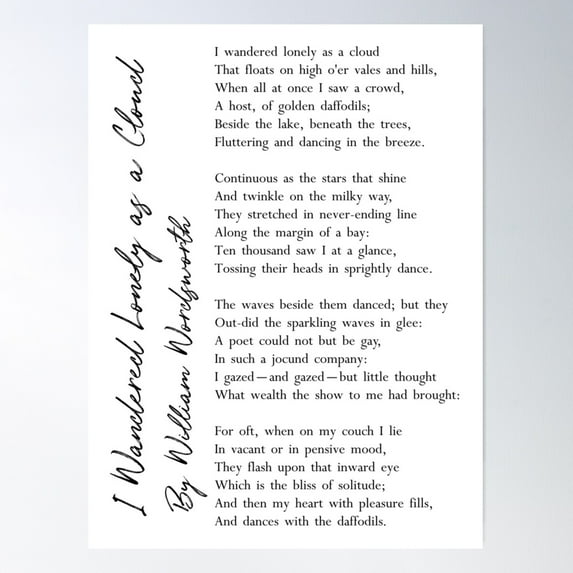 I Wandered Lonely as a Cloud
By William Wordsworth
I wandered lonely as a cloud
That floats on high o'er vales and hills,
When all at once I saw a crowd,
A host, of golden daffodils;
Beside the lake, beneath the trees,
Fluttering and dancing in the breeze.
Continuous as the stars that shine
And twinkle on the milky way,
They stretched in never-ending line
Along the margin of a bay:
Ten thousand saw I at a glance,
Tossing their heads in sprightly dance.
The waves beside them danced; but they
Out-did the sparkling waves in glee:
A poet could not but be gay,
In such a jocund company:
I gazed—and gazed—but little thought
What wealth the show to me had brought:
For oft, when on my couch I lie
In vacant or in pensive mood,
They flash upon that inward eye
Which is the bliss of solitude;
And then my heart with pleasure fills,
And dances with the daffodils.